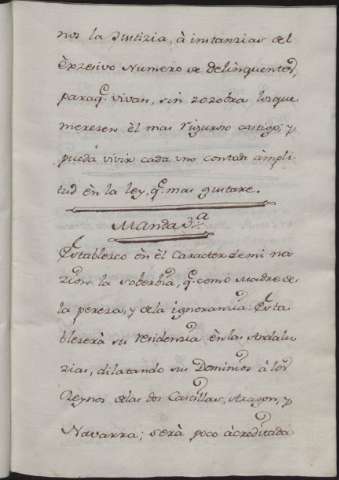 nos la Justizia, à instanzias del
èxzesivo Numero de delinquentes,
paraq.e vivan, sin zozobra los que
meresen èl mas riguroso castigo, y
pueda vivir cada uno con tan àmpli
tud èn la ley, q.e mas gustare.
Manda 3.a
Establesco èn èl Caracter de mi na
zion, la soberbia, q.e como Madre de
la peresa, y de la ignorancia. Esta
blezerà su residencia èn las Andalu
zias, dilatando sus Dominios à los
Reynos de las dos Castillas, Aragon, y
Navarra; serà poco àcreditada